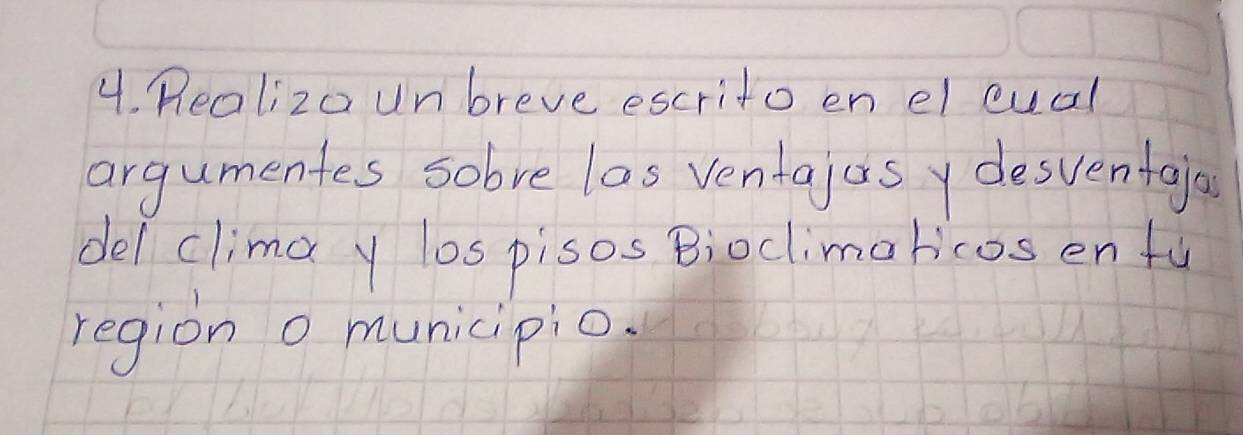 4. Realiza un breve escrito en el cual
argumentes sobre las ventajas y desventajas
del clima y los pisos Bioclimaticos en tú
región o municipio.